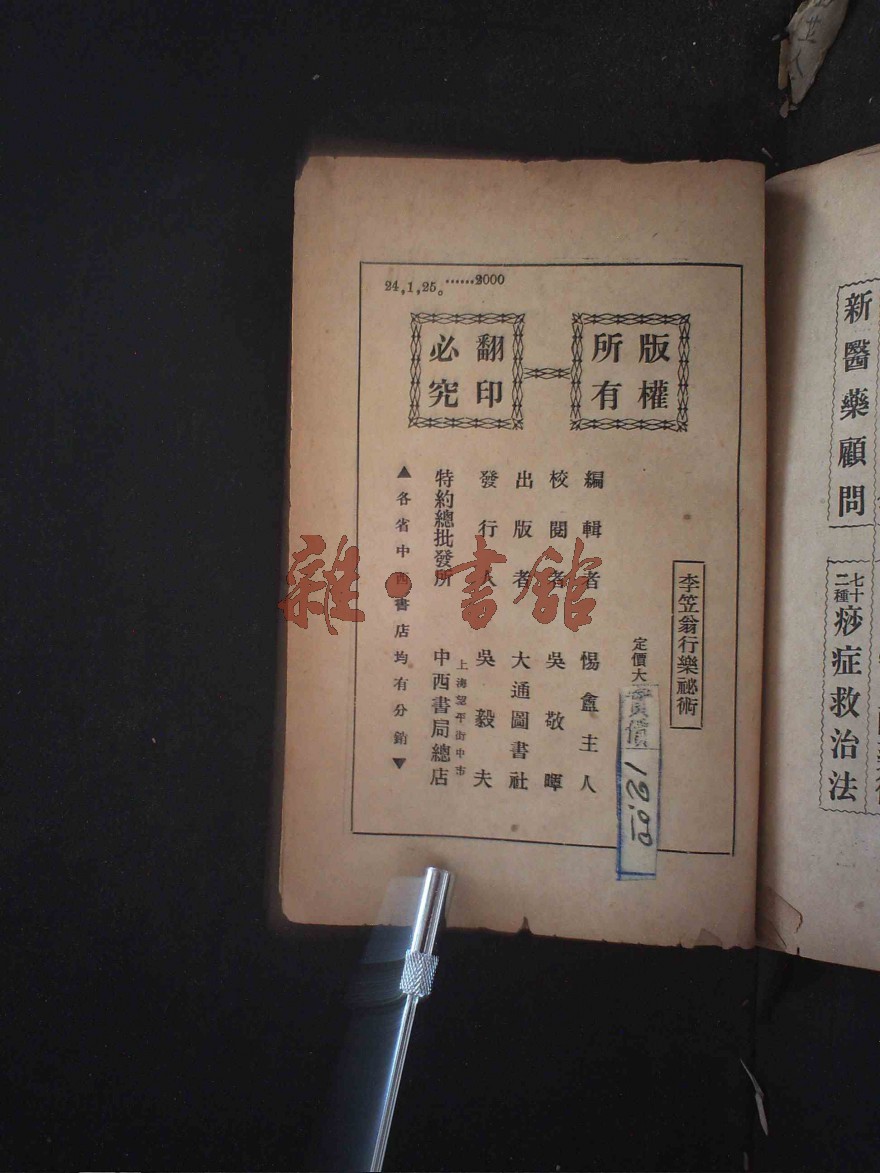 24,1,25。……2000
版權所有
翻印必究
李笠翁行樂祕術
定價大
實價
12.00
編輯者 惕盦主人
校閱者 吳敬暉
出版者 大通圖書社
發行人 吳毅夫
特約總批發所 上海望平街中市 中西書局總店
▲各省中西書店均有分銷▼
新醫藥顧問
七十二種痧症救治法
雜·書館